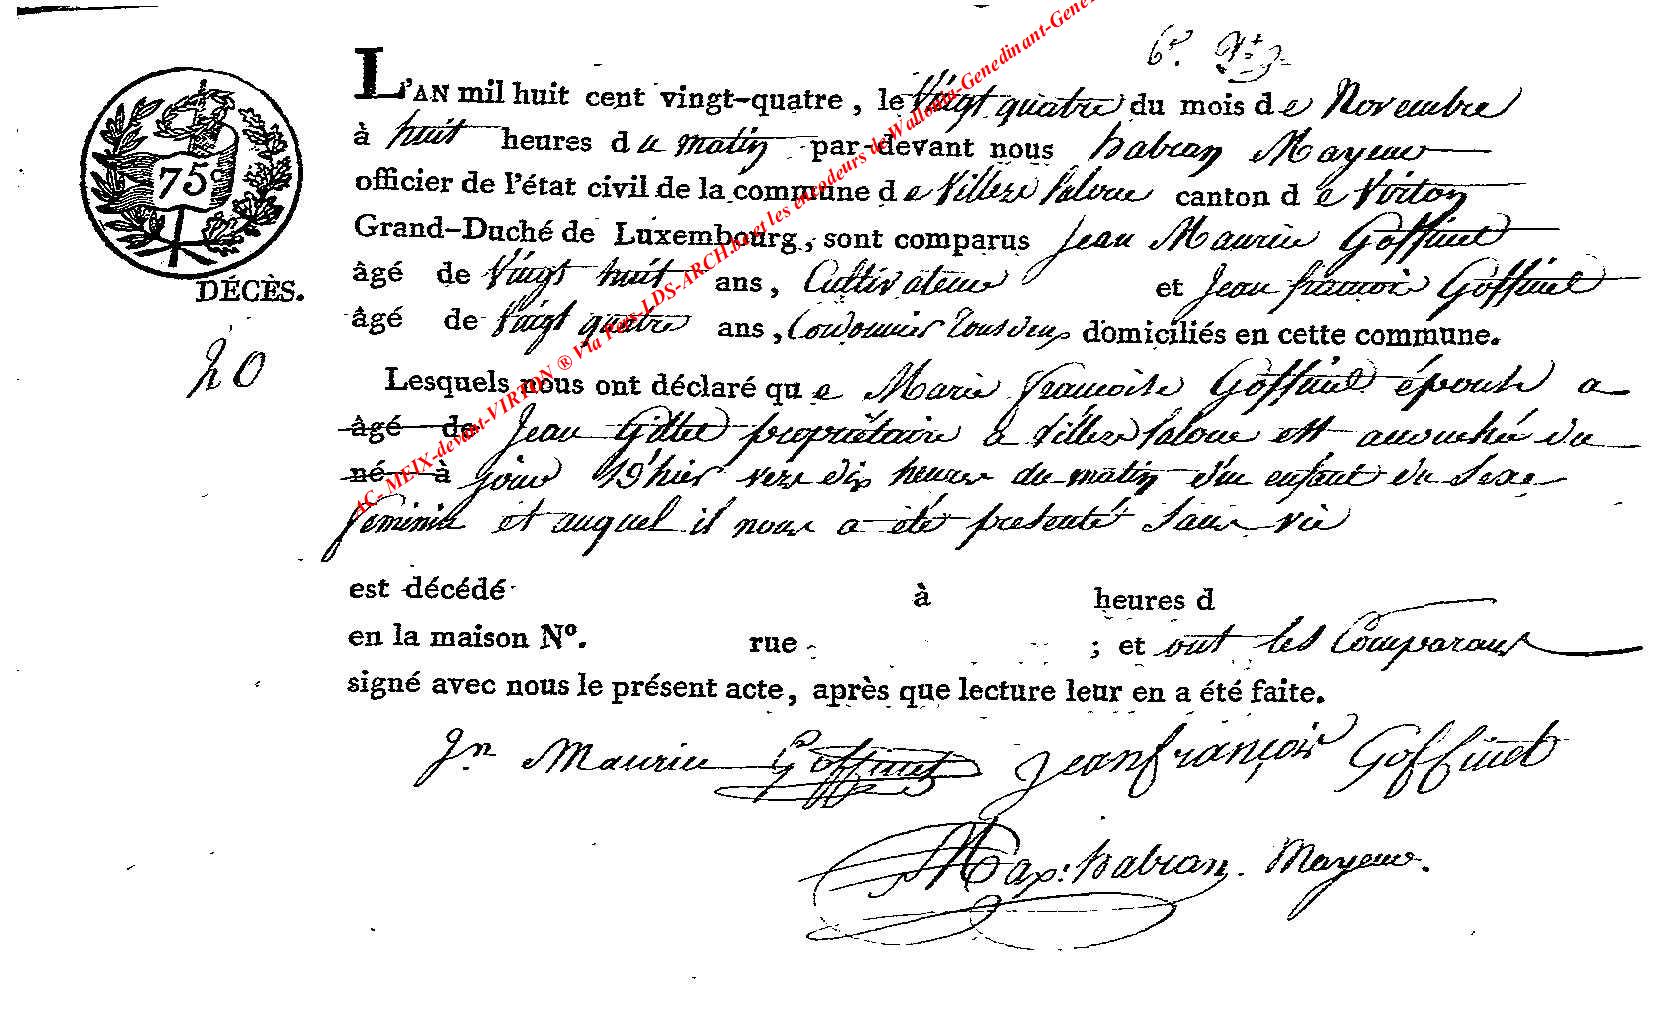 L'AN mil huit cent vingt-quatre, le Vingt quatre du mois de Novembre
à huit heures du matin par-devant nous habran Mayeur
officier de l'état civil de la commune de Villers laloue canton de Virton
Grand-Duché de Luxembourg, sont comparus Jean Maurice Goffinet
âgé de Vingt huit ans, Cultivateur et Jean françois Goffinet
DÉCÈS.
âgé de Vingt quatre ans, Cordonnier tous deux domiciliés en cette commune.
20
Lesquels nous ont déclaré que Marie françoise Goffinet épouse a
âgé de Jean Gillet propriétaire a Villers laloue est accouchée du
né à jour d'hier vers dix heures du matin d'un enfant du Sexe
féminin et auquel il nous a été presenté Sans vie
est décédé à heures d
en la maison N°. rue ; et ont les Comparans
signé avec nous le présent acte, après que lecture leur en a été faite.
Jn Maurice Goffinet Jean françois Goffinet
Max: habran. Mayeur.
75
AC- MEIX-devant-VIRTON ® Via Pers-LDS-ARCH.be et les encodeurs de Wallonia-Genedinant-Gene